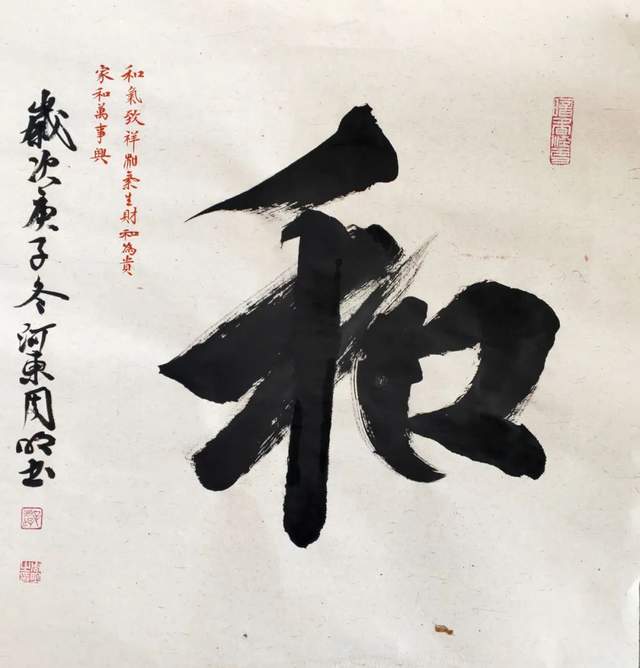 和
和氣致祥和氣生財和為貴
家和萬事興
歲次庚子冬河東周明书